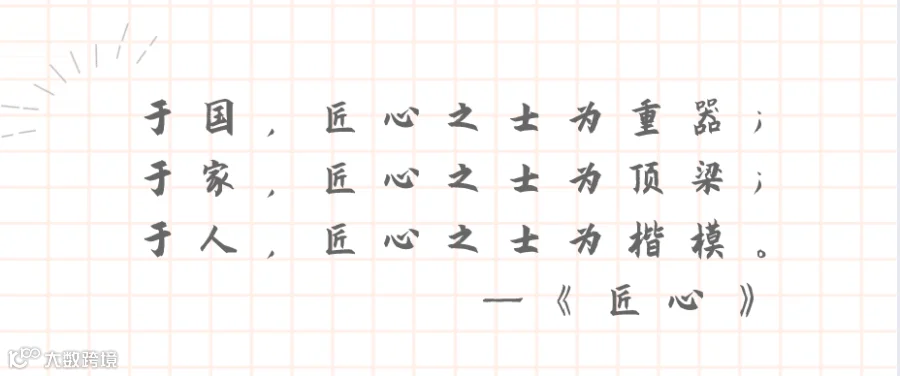 于国，匠心之士为重器；
于家，匠心之士为顶梁；
于人，匠心之士为楷模。
—《匠心》
大数跨境